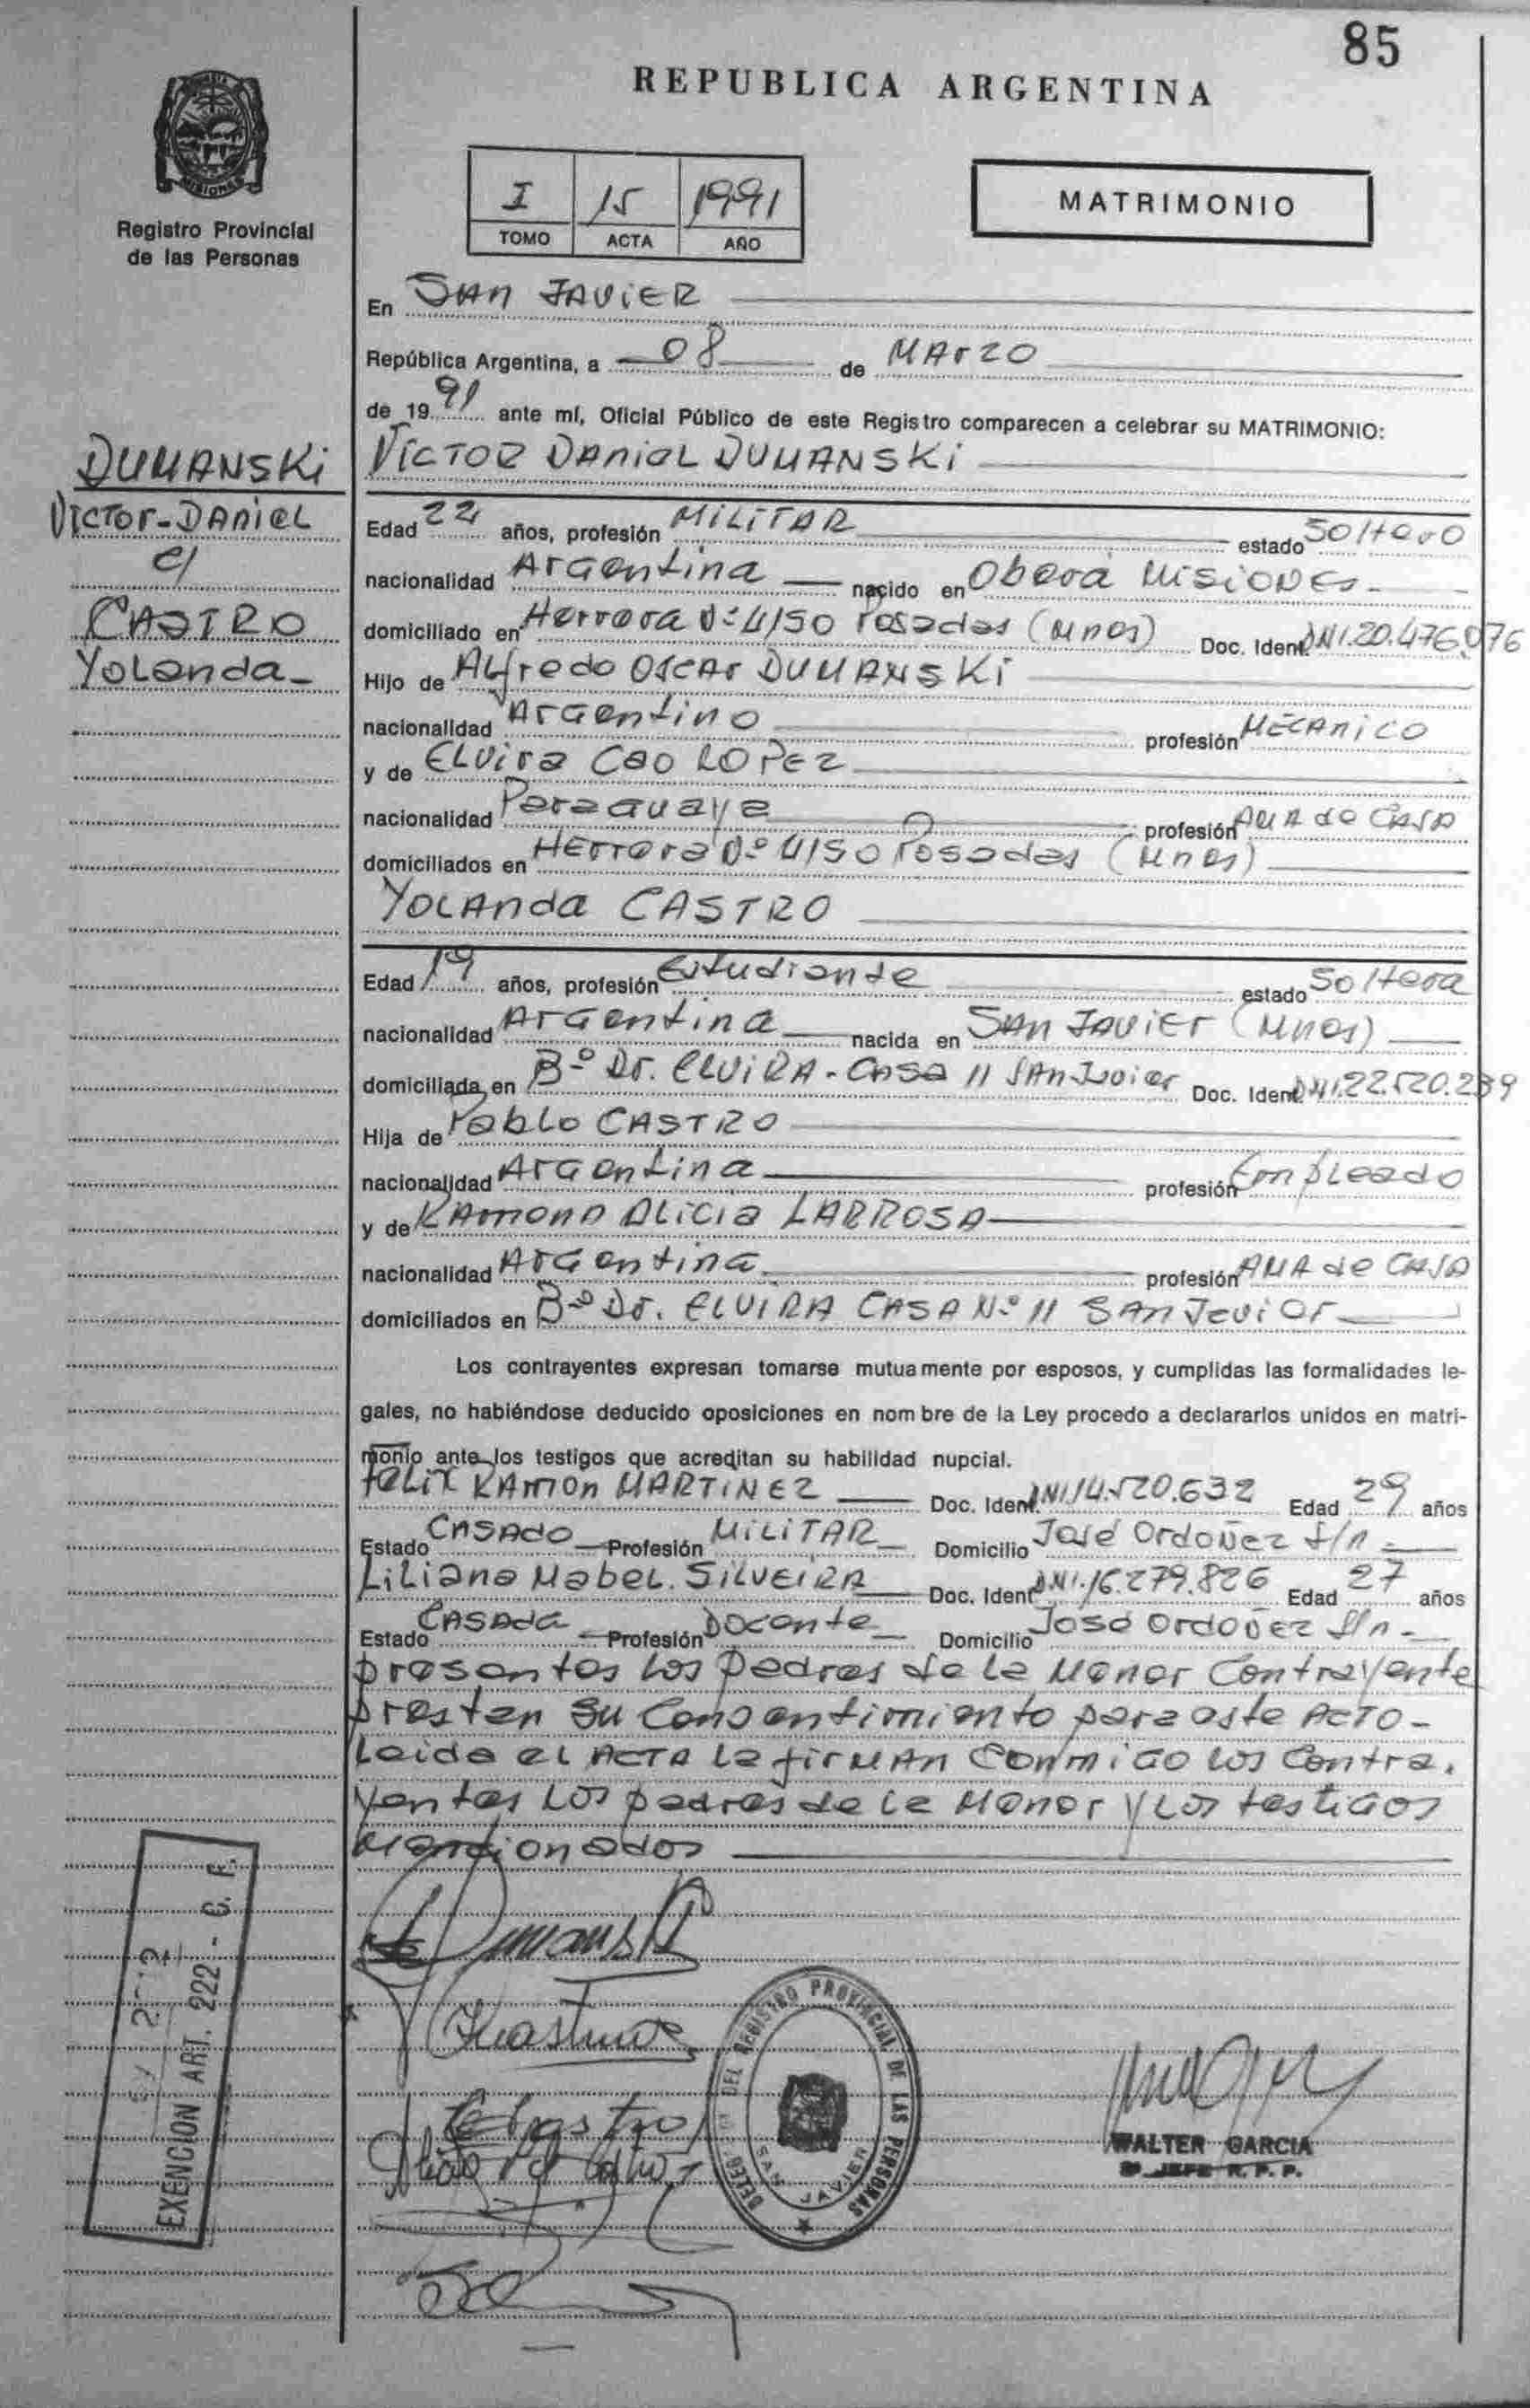 85
REPUBLICA ARGENTINA
MISIONES
Registro Provincial
de las Personas
I 15 1991
TOMO ACTA AÑO
MATRIMONIO
En SAN JAVIER
República Argentina, a 08 de MARZO
de 19 91 ante mí, Oficial Público de este Registro comparecen a celebrar su MATRIMONIO:
DUMANSKi
Victor-DANiEL
c/
CASTRO
Yolanda
VÍCTOR DANiEL DUMANSKi
Edad 22 años, profesión MiLiTAR estado Soltero
nacionalidad Argentina nacido en Oberá Misiones
domiciliado en Herrera Nº 4150 Posadas (Mnes) Doc. Ident. DNI.20.476.076
Hijo de Alfredo OSCAR DUMANSKi
nacionalidad Argentino profesión MECANICO
y de ELVira CAO LOPEZ
nacionalidad Paraguaya profesión AMA de CASA
domiciliados en HERRERA Nº 4150 Posadas (Mnes)
YOLANda CASTRO
Edad 19 años, profesión Estudiante estado Soltera
nacionalidad Argentina nacida en SAN JAVIER (Mnes)
domiciliada en Bº Dr. ELVIRA - Casa 11 SAN Javier Doc. Ident. DNI.22.520.239
Hija de Pablo CASTRO
nacionalidad Argentina profesión Empleado
y de RAMONA ALiCia LARROSA
nacionalidad Argentina profesión AMA de CASA
domiciliados en Bº Dr. ELVIRA CASA Nº 11 SAN Javier
Los contrayentes expresan tomarse mutuamente por esposos, y cumplidas las formalidades le-
gales, no habiéndose deducido oposiciones en nombre de la Ley procedo a declararlos unidos en matri-
monio ante los testigos que acreditan su habilidad nupcial.
FELIX RAMON MARTINEZ Doc. Ident. DNI.14.520.632 Edad 29 años
Estado CASADO Profesión MiLiTAR Domicilio José Ordoñez S/n
Liliana Mabel. SiLVEiRA Doc. Ident DNI.16.279.826 Edad 27 años
Estado CASADA Profesión Docente Domicilio José Ordoñez S/n
presentes los padres de la Menor Contrayente
presten su Consentimiento para este ACTO-
Leida el ACTA la firman conmigo los Contra-
yentes los padres de la Menor y los testigos
Mencionados
EXENCION ART. 222 - C. F.
DEL REGISTRO PROVINCIAL DE LAS PERSONAS
SAN JAVIER
WALTER GARCIA
JEFE R. P. P.